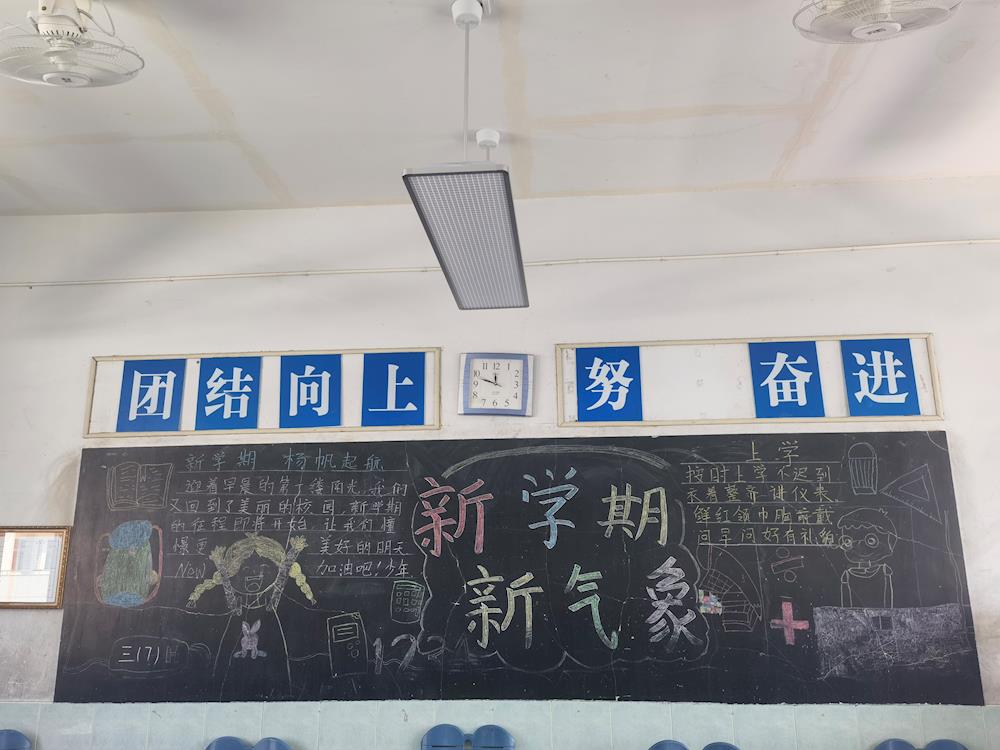 团结向上
努 奋进
新学期 杨帆起航
迎着早晨的第一缕阳光,我们
又回到了美丽的校园,新学期
的征程即将开始,让我们懂
憬更 美好的明天
Now 加油吧!少年
新学期
新气象
上学
按时上学不迟到
衣着整齐讲仪表
鲜红领巾胸前戴
问早问好有礼貌
三(7)
12
11 12 1
10 2
9 3
8 4
7 6 5